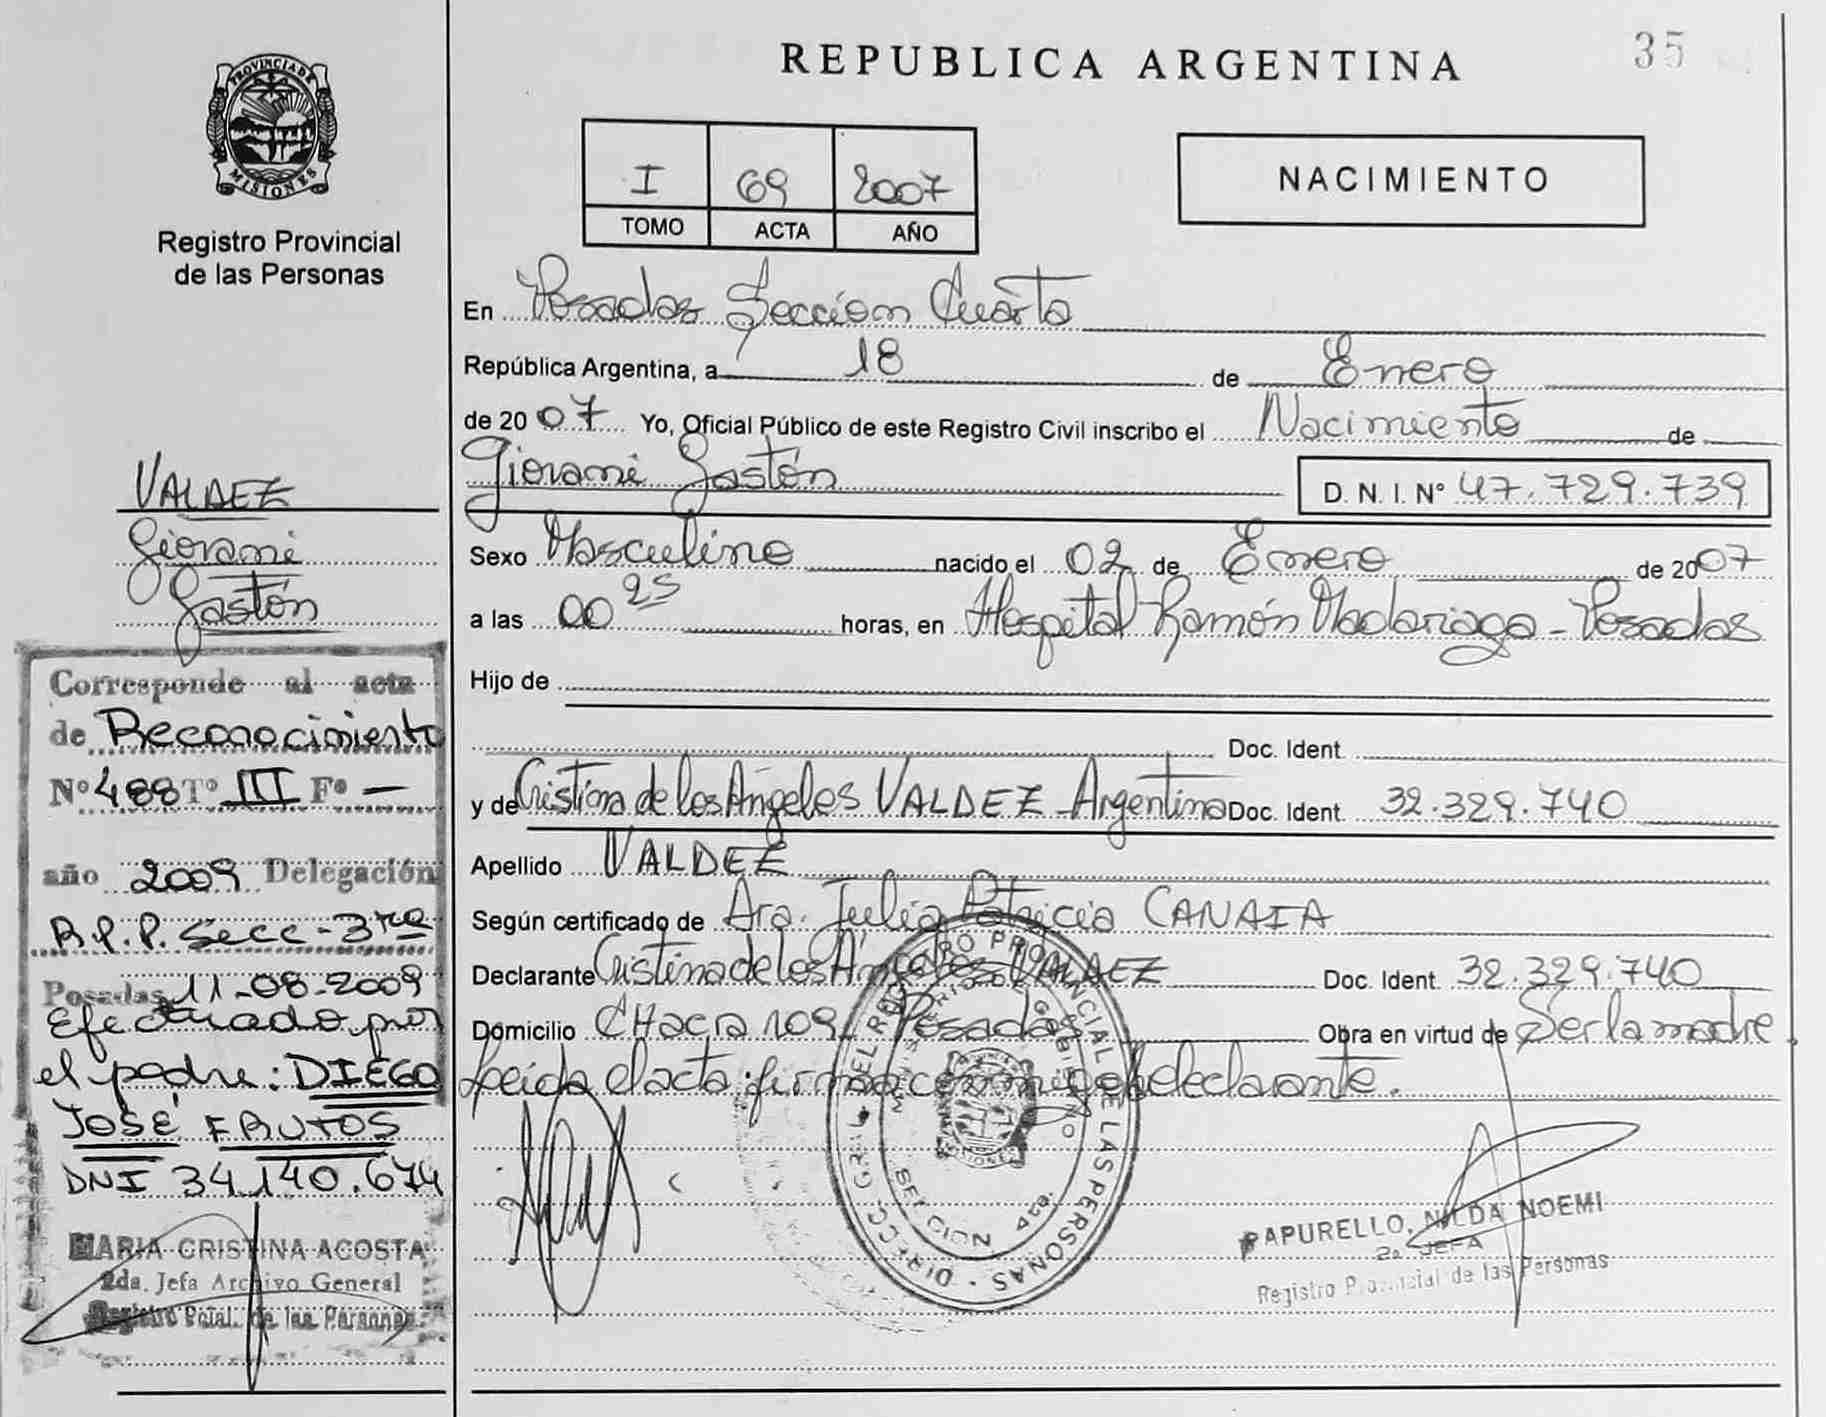 35
REPUBLICA ARGENTINA
PROVINCIA DE
MISIONES
Registro Provincial
de las Personas
I 69 2007
TOMO ACTA AÑO
NACIMIENTO
En Posadas Sección Cuarta
República Argentina, a 18 de Enero
de 2007 Yo, Oficial Público de este Registro Civil inscribo el Nacimiento de
Giovani Gastón D. N. I. N° 47.729.739
Sexo Masculino nacido el 02 de Enero de 2007
a las 00 25 horas, en Hospital Ramón Madariaga - Posadas
Hijo de
Doc. Ident.
y de Cristina de los Ángeles VALDEZ - Argentina Doc. Ident. 32.329.740
Apellido VALDEZ
Según certificado de Dra. Julia Patricia CANAIA
Declarante Cristina de los Ángeles VALDEZ Doc. Ident. 32.329.740
Domicilio CHacra 109 Posadas Obra en virtud de Ser la madre
Leída el acta firma conmigo la declarante.
DIRECC. GRAL. DEL REGISTRO PROVINCIAL DE LAS PERSONAS
MINISTERIO DE GOBIERNO
SECCION 4ta.
MISIONES
PAPURELLO, NILDA NOEMI
2a. JEFA
Registro Provincial de las Personas
VALDEZ
Giovani
Gastón
Corresponde al acta
de Reconocimiento
N° 488 T° III F° —
año 2009 Delegación
R.P.P. Secc - 3ra
Posadas 11-08-2009
Efectuado por
el padre: DIEGO
JOSÉ FRUTOS
DNI 34.140.674
MARIA CRISTINA ACOSTA
2da. Jefa Archivo General
Registro Pcial. de las Personas